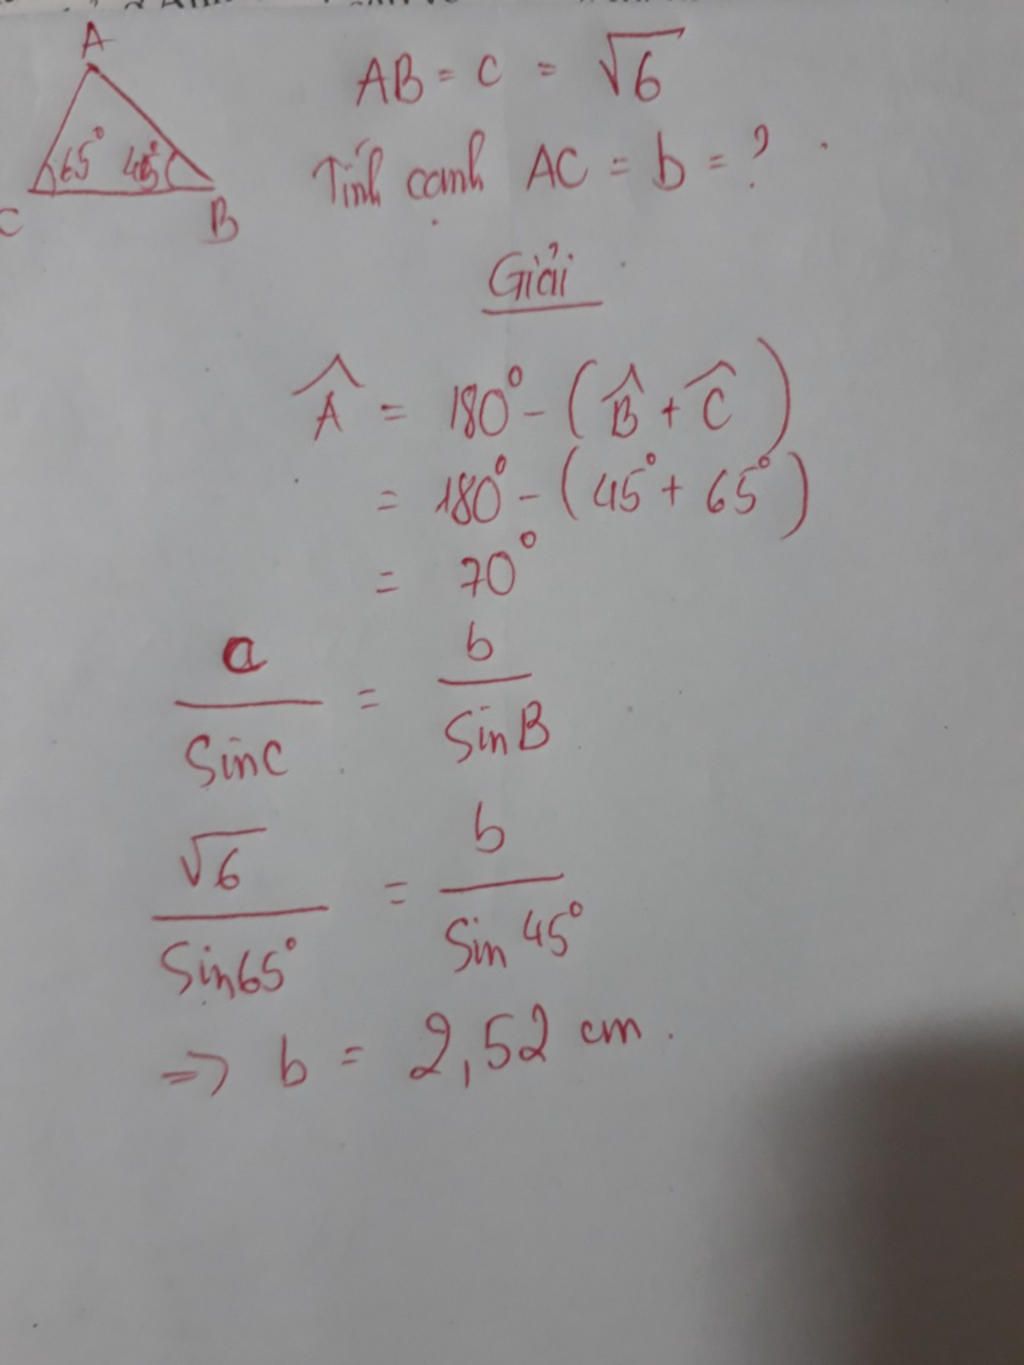 A
AB = c = √6
65° 45°
C B
Tính cạnh AC = b = ?
Giải
Â = 180° - (B̂ + Ĉ)
= 180° - (45° + 65°)
= 70°
a/SinC = b/SinB
√6/Sin65° = b/Sin 45°
=> b = 2,52 cm.